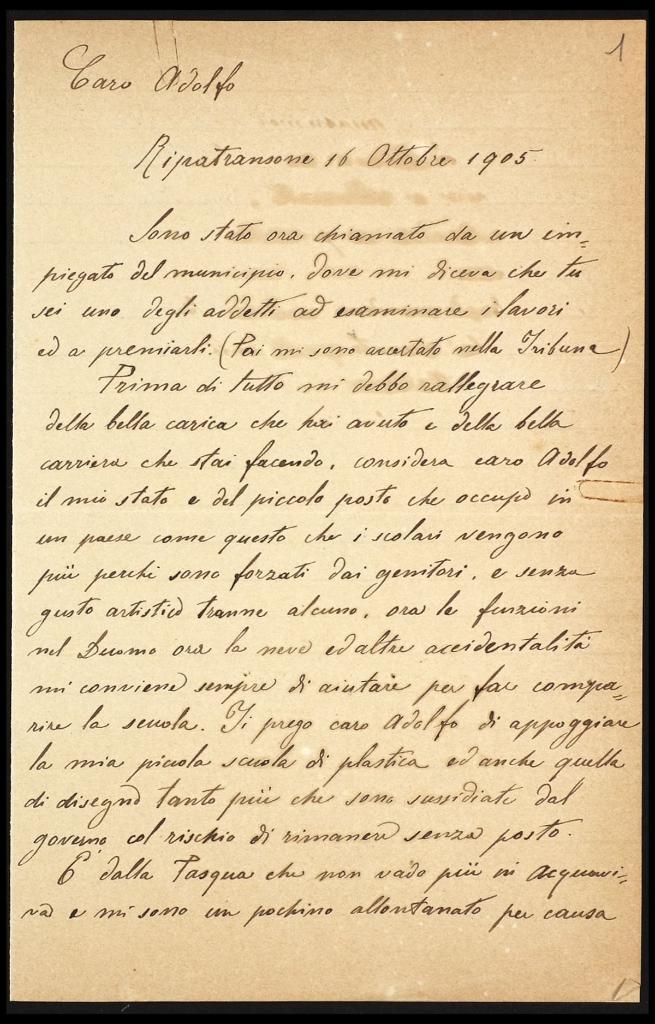 1
Caro Adolfo
Ripatransone 16 Ottobre 1905.
Sono stato ora chiamato da un im=
piegato del municipio, dove mi diceva che tu
sei uno degli addetti ad esaminare i lavori
ed a premiarli. (Poi mi sono accertato nella Tribuna)
Prima di tutto mi debbo rallegrare
della bella carica che hai avuto e della bella
carriera che stai facendo, considera caro Adolfo
il mio stato e del piccolo posto che occupo in
un paese come questo che i scolari vengono
più perchè sono forzati dai genitori, e senza
gusto artistico tranne alcuno, ora le funzioni
nel Duomo ora la neve ed altre accidentalità
mi conviene sempre di aiutare per far compa=
rire la scuola. Ti prego caro Adolfo di appoggiare
la mia piccola scuola di plastica ed anche quella
di disegno tanto più che sono sussidiate dal
governo col rischio di rimanere senza posto.
E' dalla Pasqua che non vado più in Acquavi=
va e mi sono un pochino allontanato per causa